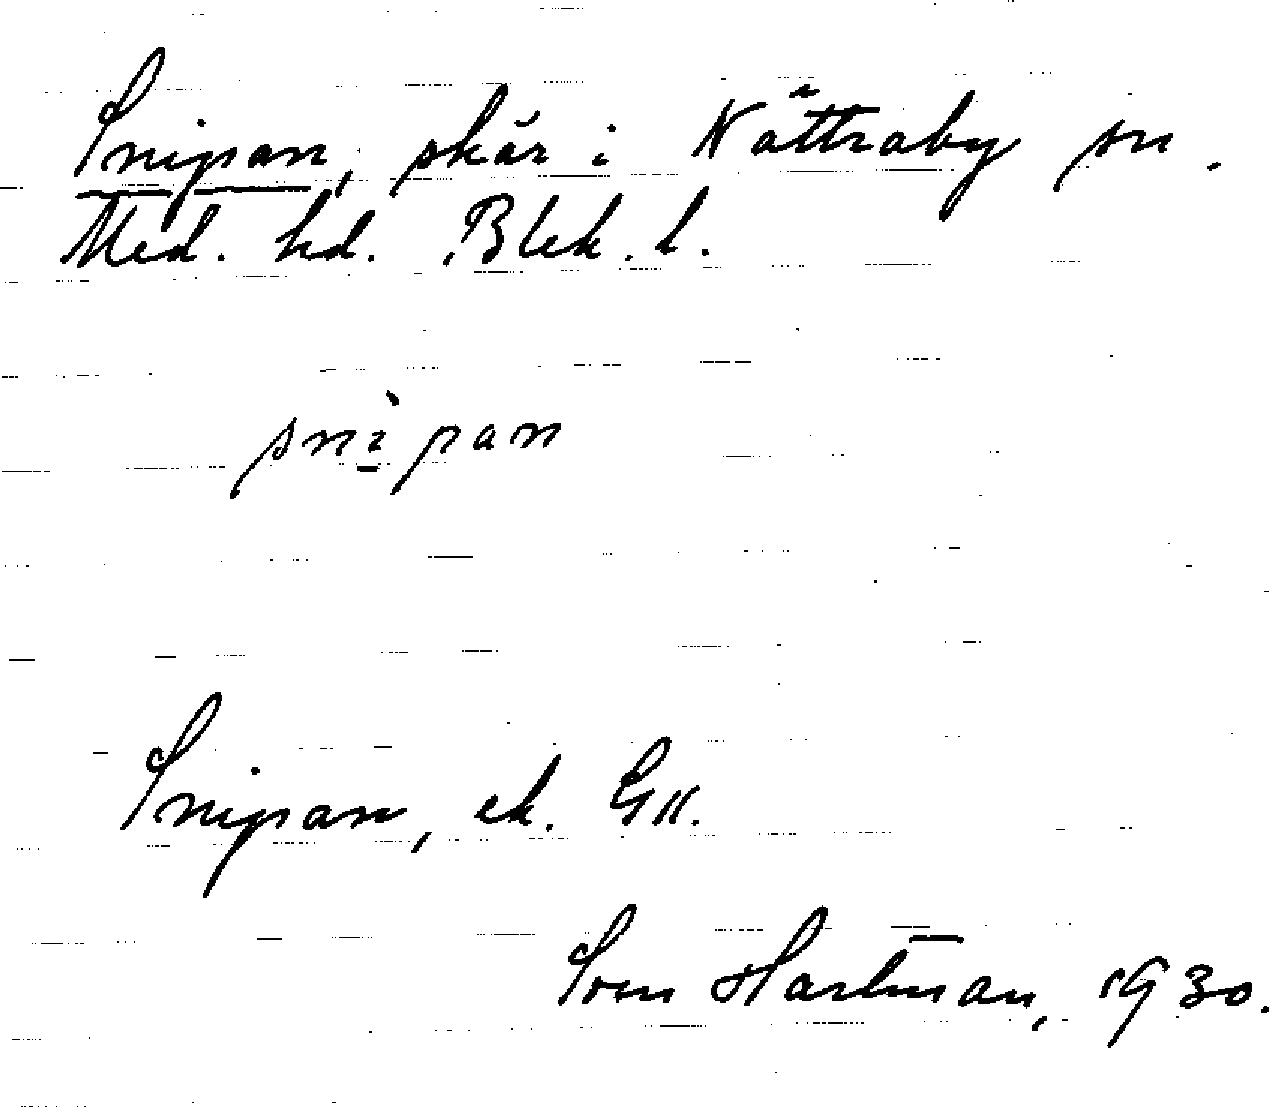 Snipan, skär i Nättraby sn.
Med. hd. Blek. l.
snìpan
Snipan, ek. GK.
Sven Hartman, 1930.